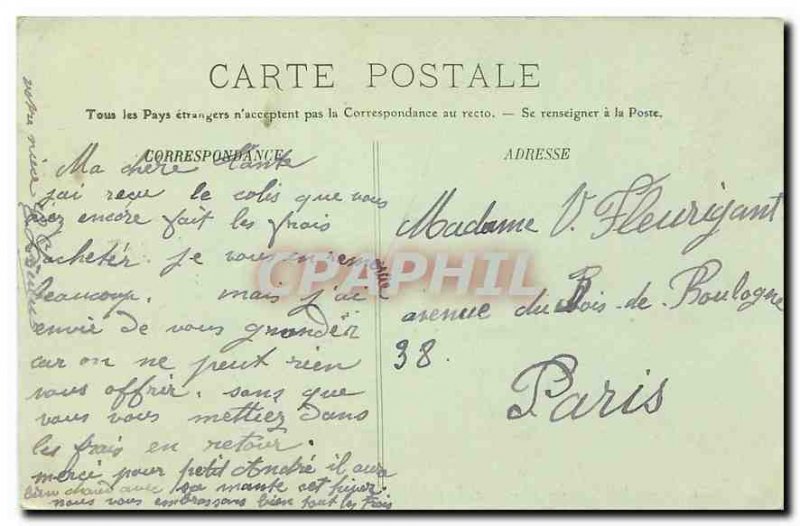 CARTE POSTALE
Tous les Pays étrangers n'acceptent pas la Correspondance au recto. — Se renseigner à la Poste.
CORRESPONDANCE
ADRESSE
Ma chère tante
j'ai reçu le colis que vous
avez encore fait les frais
d'acheter. je vous en remercie
beaucoup. mais j'ai
envie de vous grondër
car on ne peut rien
vous offrir. sans que
vous vous mettiez dans
les frais en retour.
merci pour petit André il aura
bien chaud avec sa mante cet hiver.
nous vous embrassons bien tout les trois
votre nièce
Madame V. Fleurigant
avenue du Bois-de-Boulogne
38.
Paris
CPAPHIL